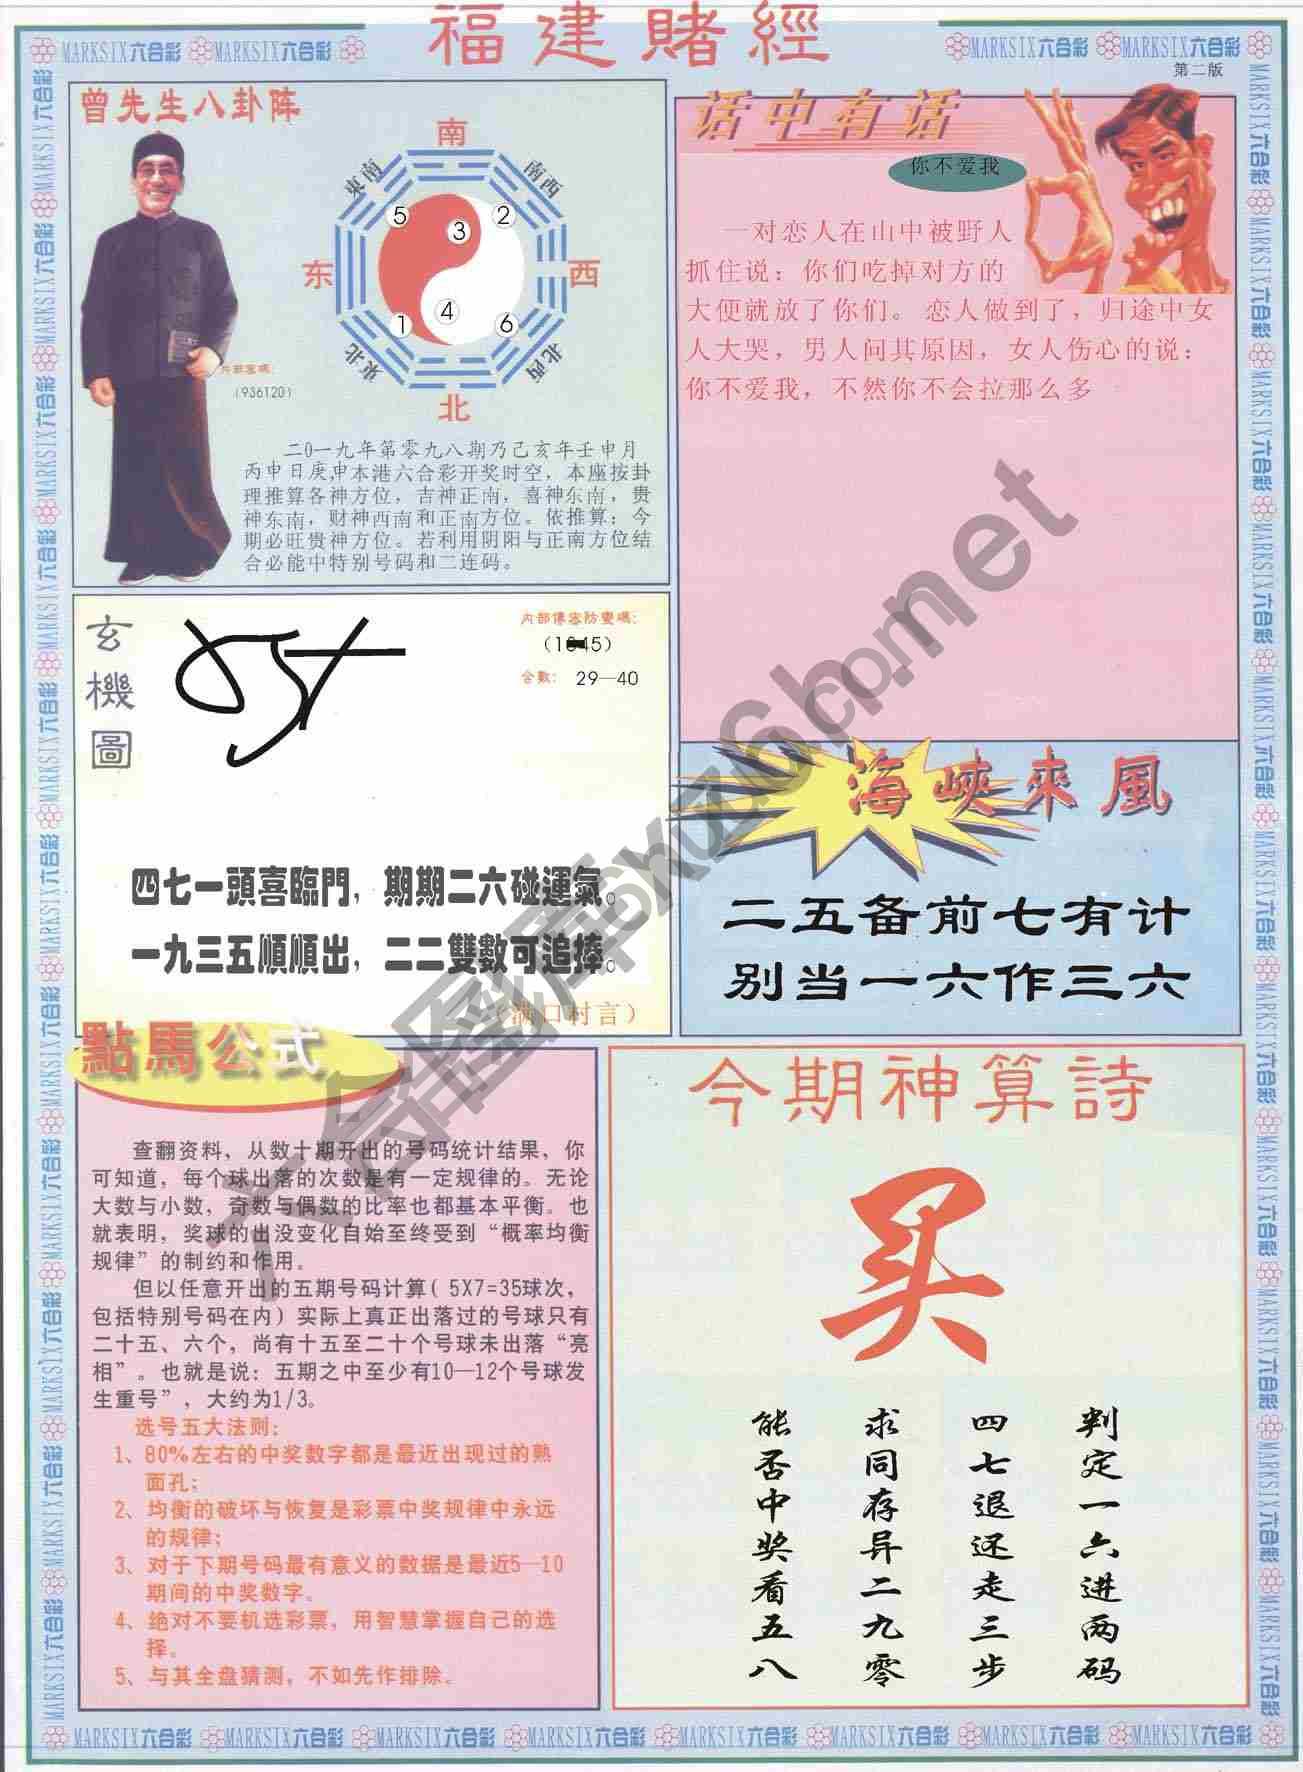 福建賭經
MARKSIX六合彩 MARKSIX六合彩
MARKSIX六合彩 MARKSIX六合彩
第二版
曾先生八卦阵
南
東南
南西
5
3
2
东
西
4
1
6
東北
北西
北
内部密碼：
(936120)
二0一九年第零九八期乃己亥年壬申月
丙申日庚申本港六合彩开奖时空，本座按卦
理推算各神方位，吉神正南，喜神东南，贵
神东南，财神西南和正南方位。依推算；今
期必旺贵神方位。若利用阴阳与正南方位结
合必能中特别号码和二连码。
话中有话
你不爱我
一对恋人在山中被野人
抓住说：你们吃掉对方的
大便就放了你们。恋人做到了，归途中女
人大哭，男人问其原因，女人伤心的说：
你不爱我，不然你不会拉那么多
玄機圖
内部傳密防變碼：
合數： 29—40
四七一頭喜臨門，期期二六碰運氣。
一九三五順順出，二二雙數可追捧。
（满口村言）
海峽來風
二五备前七有计
别当一六作三六
點馬公式
查翻资料，从数十期开出的号码统计结果，你
可知道，每个球出落的次数是有一定规律的。无论
大数与小数，奇数与偶数的比率也都基本平衡。也
就表明，奖球的出没变化自始至终受到“概率均衡
规律”的制约和作用。
但以任意开出的五期号码计算( 5X7=35球次，
包括特别号码在内）实际上真正出落过的号球只有
二十五、六个，尚有十五至二十个号球未出落“亮
相”。也就是说：五期之中至少有10—12个号球发
生重号”，大约为1/3。
选号五大法则：
1、80%左右的中奖数字都是最近出现过的熟
面孔；
2、均衡的破坏与恢复是彩票中奖规律中永远
的规律；
3、对于下期号码最有意义的数据是最近5—10
期间的中奖数字。
4、绝对不要机选彩票，用智慧掌握自己的选
择。
5、与其全盘猜测，不如先作排除。
今期神算詩
买
判定一六进两码
四七退还走三步
求同存异二九零
能否中奖看五八
MARKSIX六合彩 MARKSIX六合彩 MARKSIX六合彩 MARKSIX六合彩 MARKSIX六合彩 MARKSIX六合彩 MARKSIX六合彩 MARKSIX六合彩